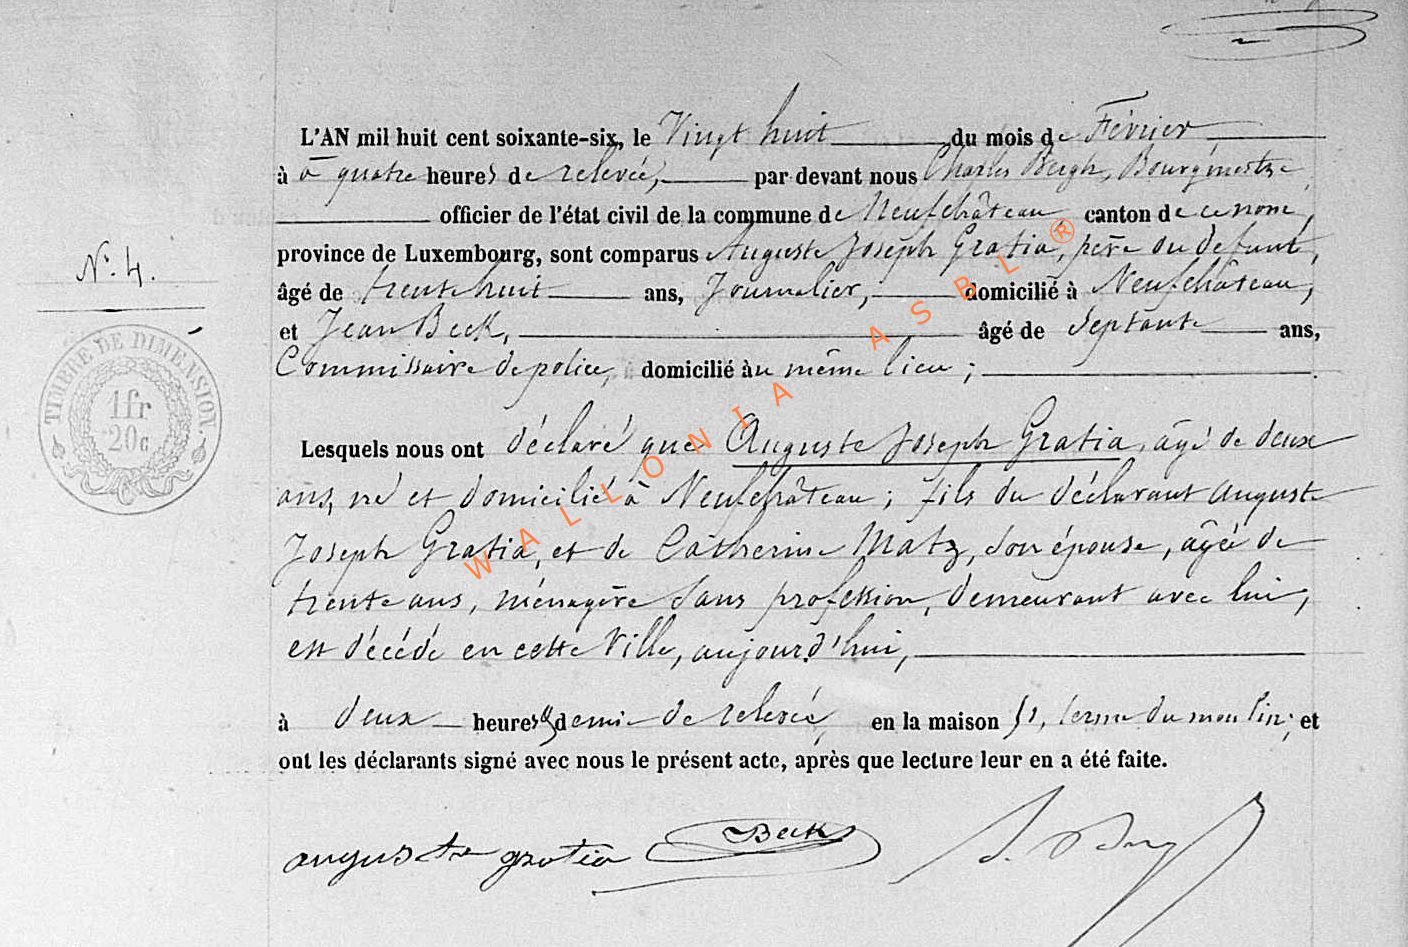 L'AN mil huit cent soixante-six, le Vingt huit du mois de Février
à à quatre heures de relevée, par devant nous Charles Bergh, Bourgmestre
officier de l'état civil de la commune de Neufchâteau canton de ce nom,
province de Luxembourg, sont comparus Auguste Joseph Gratia, père du défunt,
N.º 4.
âgé de trente huit ans, Journalier, domicilié à Neufchâteau,
et Jean Beck, âgé de Septante ans,
Commissaire de police, domicilié au même lieu ;
TIMBRE DE DIMENSION.
1 fr
20c
Lesquels nous ont déclaré que Auguste Joseph Gratia, âgé de deux
ans, né et domicilié à Neufchâteau ; fils du déclarant Auguste
Joseph Gratia, et de Catherine Matz, son épouse, âgée de
trente ans, ménagère sans profession, demeurant avec lui,
est décédé en cette Ville, aujourd'hui,
à deux heures & demie de relevée, en la maison du moulin ; et
ont les déclarants signé avec nous le présent acte, après que lecture leur en a été faite.
auguste gratia Beck
WALLONIA ASBL ®